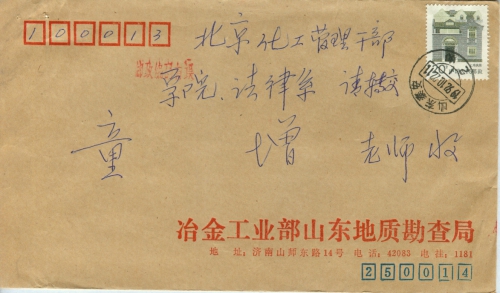 100013
北京化工管理干部
学院、法律系 请转交
童 增 老师收
冶金工业部山东地质勘查局
地 址：济南山师东路14号 电话：42083 电挂：1181
250014